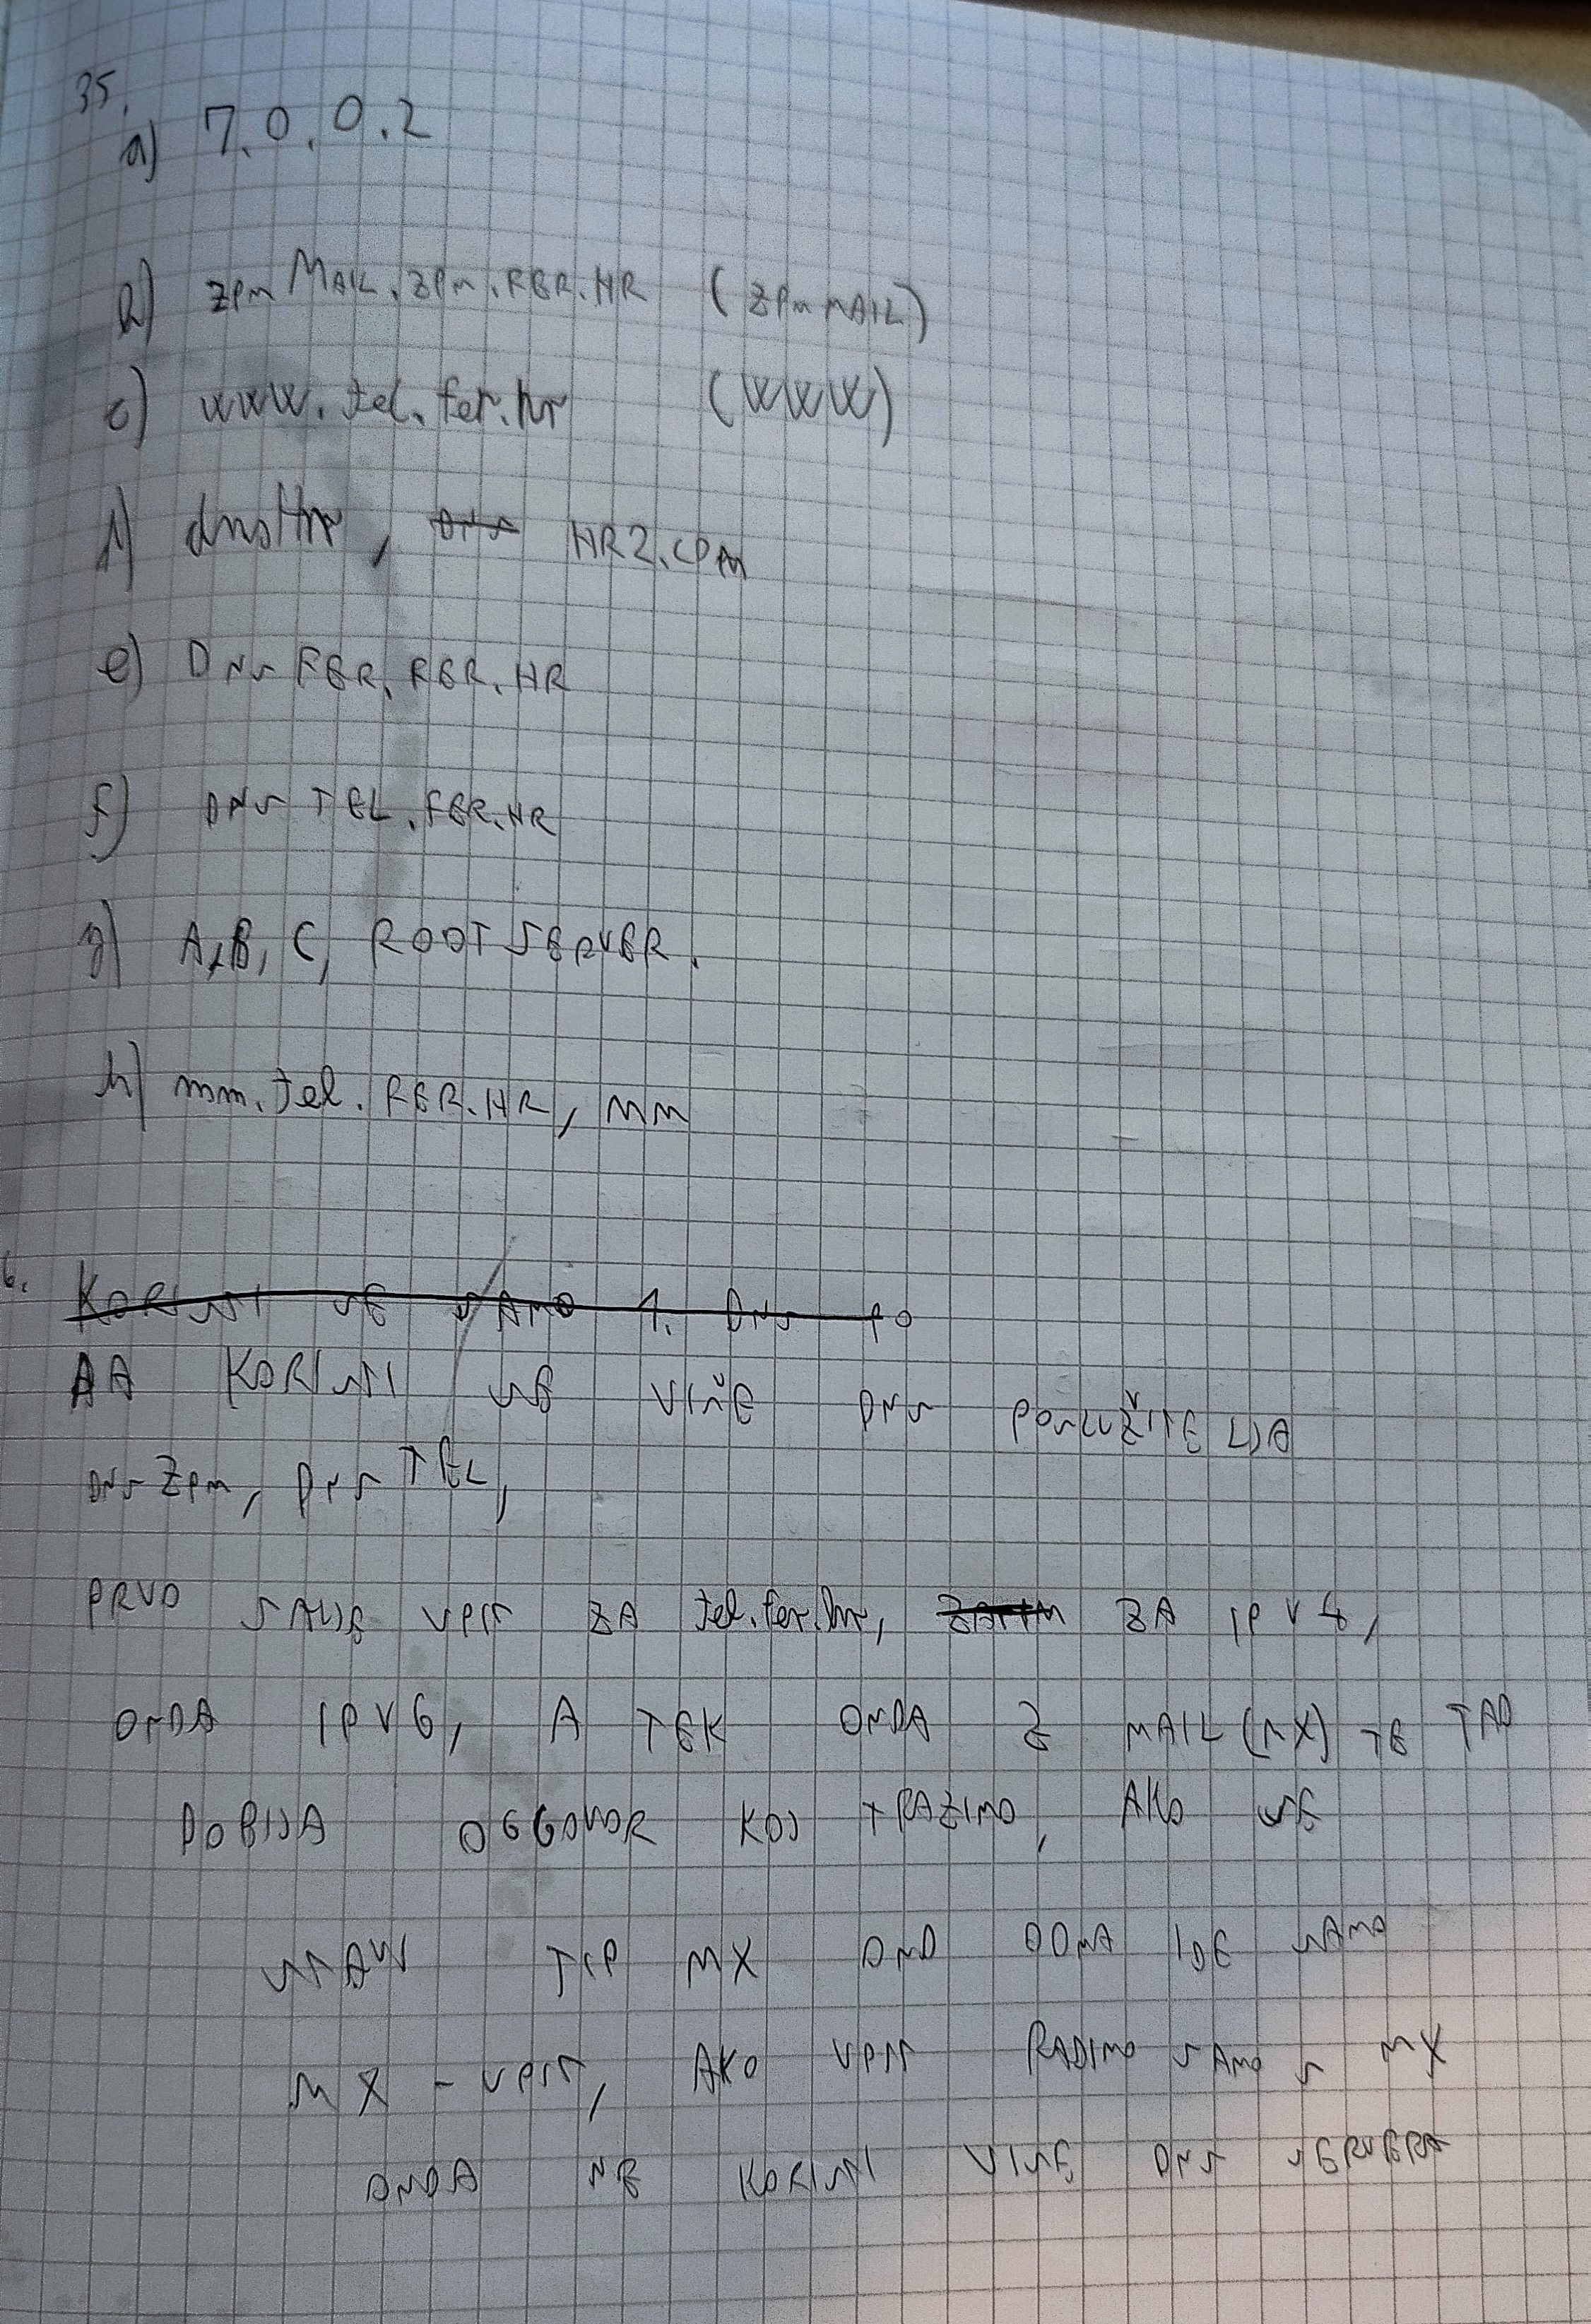 35.
a) 7.0.0.2
b) zpm MAIL.ZPM.FER.HR (ZPM MAIL)
c) www.tel.fer.hr (WWW)
d) dnsHr, DNS HR2.CPM
e) DNS FER.FER.HR
f) DNS TEL.FER.HR
g) A,B,C, ROOT SERVER.
h) mm.tel.FER.HR, MM
6. KORISTI SE SAMO 1. DNS PO
DA KORISTI SE VIŠE DNS POSLUŽITELJA
DNS ZPM, DNS TEL,
PRVO ŠALJE UPIT ZA tel.fer.hr, ZATIM ZA IPV4,
ONDA IPV6, A TEK ONDA Z MAIL (MX) TE TAD
DOBIJA ODGOVOR KOJ TRAZIMO, AKO SE
STAVI TIP MX OND ODMA IDE SAMO
MX - UPIT, AKO UPIT RADIMO SAMO S MX
ONDA NE KORISTI VISE DNS SERVERA